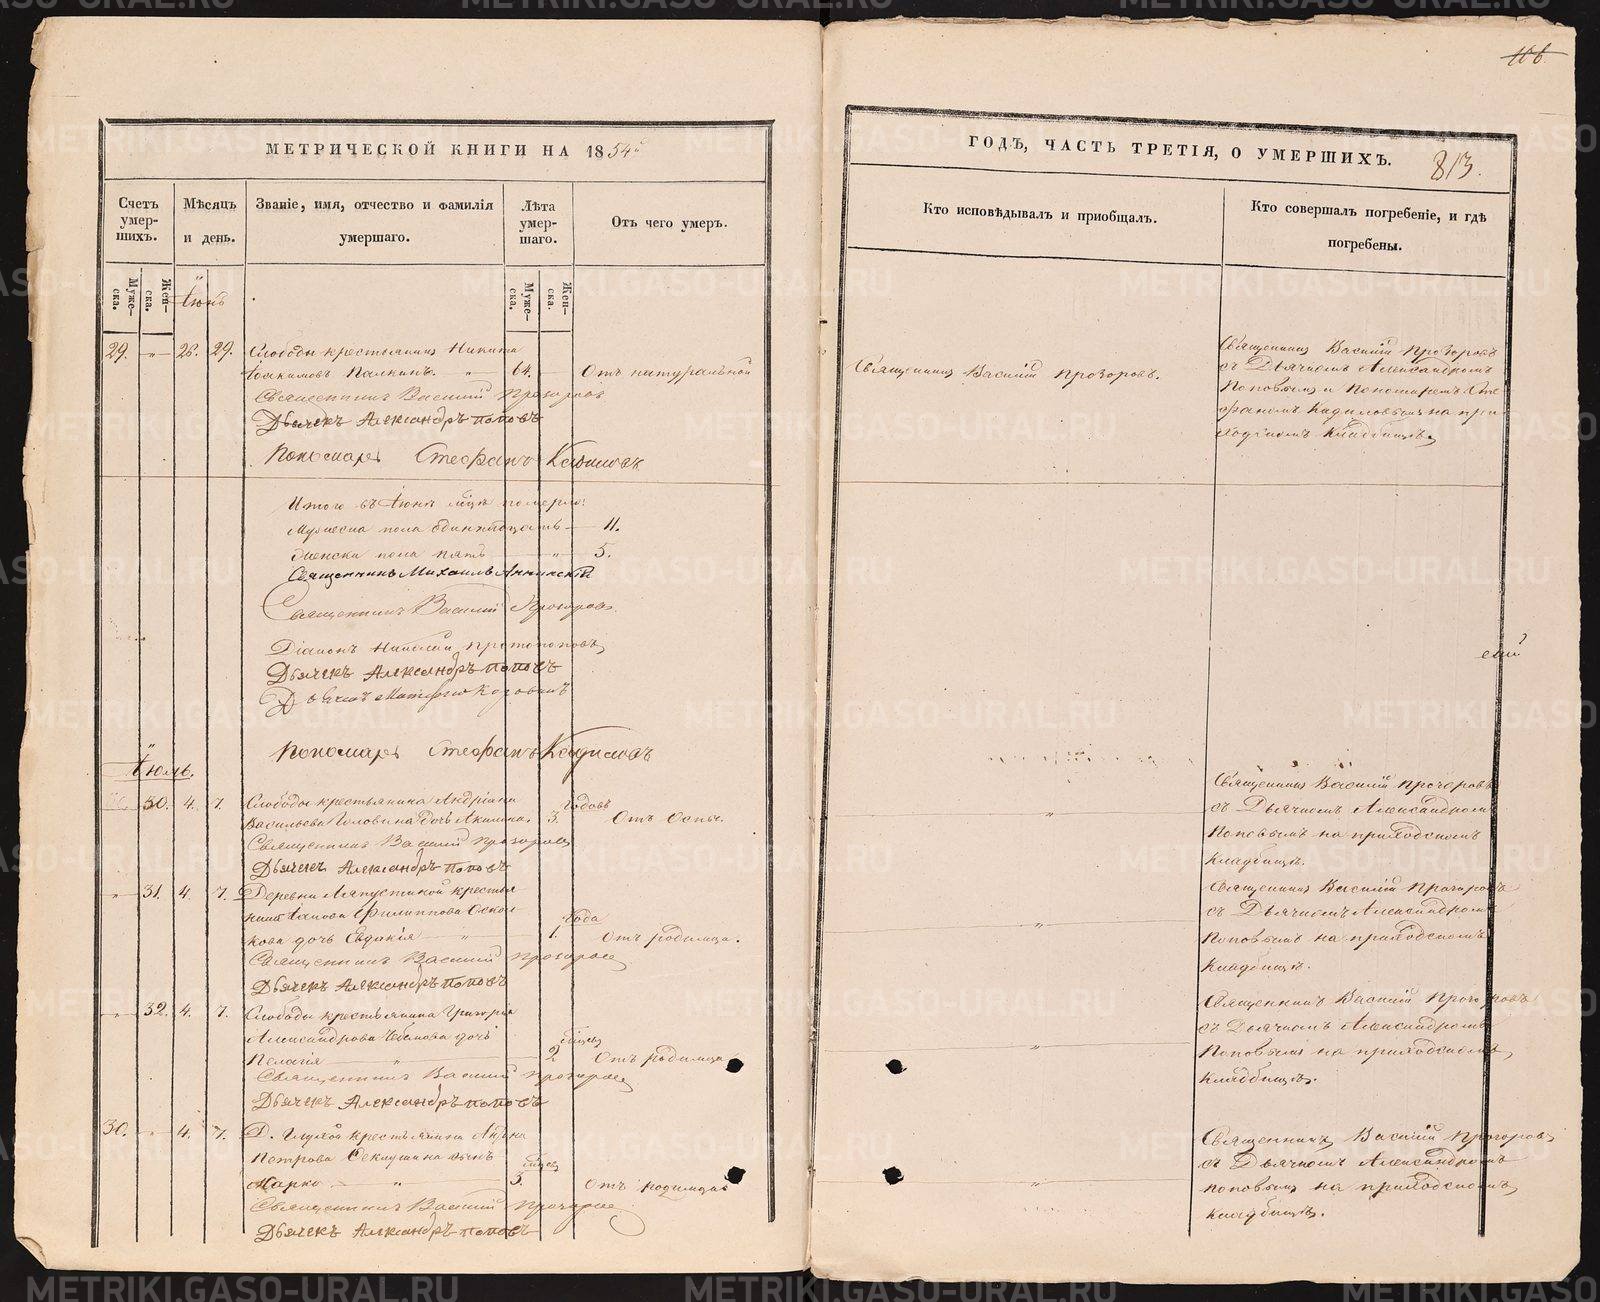 106
МЕТРИЧЕСКОЙ КНИГИ НА 1854й
ГОДЪ, ЧАСТЬ ТРЕТІЯ, О УМЕРШИХЪ.
813.
Счетъ умер-
шихъ.
Мѣсяцъ
и день.
Званіе, имя, отчество и фамилія
умершаго.
Лѣта
умер-
шаго.
Отъ чего умеръ.
Кто исповѣдывалъ и пріобщалъ.
Кто совершалъ погребеніе, и гдѣ
погребены.
Муже-
ска.
Жен-
ска.
Муже-
ска.
Жен-
ска.
Іюнь
29. 26. 29. Слободы крестьянинъ Никита
Іоакимовъ Палкинъ. 64. Отъ натуральной
Священникъ Василій Прозоровъ
Дьячекъ Александръ Поповъ
Пономарь Стефанъ Кадиловъ
Священникъ Василій Прозоровъ.
Священникъ Василій Прозоровъ
съ Дьячкомъ Александромъ
Поповымъ и Пономаремъ Сте
фаномъ Кадиловымъ на при
ходскомъ кладбищѣ.
Итого въ Іюнѣ м̃цѣ померло:
Мужеска пола одиннадцать 11.
Женска пола пять 5.
Священникъ Михаилъ Аннинскій
Священникъ Василій Прозоровъ
Діаконъ Николай Протопоповъ
Дьячекъ Александръ Поповъ
Дьячекъ
Пономарь Стефанъ Кадиловъ
Іюль.
30. 4. 7. Слободы крестьянина Андріана
Васильева Головина дочь Акилина. 3. годовъ Отъ Оспы.
Священникъ Василій Прозоровъ
Дьячекъ Александръ Поповъ
Священникъ Василій Прозоровъ
съ Дьячкомъ Александромъ
Поповымъ на приходскомъ
кладбищѣ.
31. 4. 7. Деревни крестья
нина Филиппова
кова дочь Евдокія 1. года Отъ родимца.
Священникъ Василій Прозоровъ
Дьячекъ Александръ Поповъ
Священникъ Василій Прозоровъ
съ Дьячкомъ Александромъ
Поповымъ на приходскомъ
кладбищѣ.
32. 4. 7. Слободы крестьянина Григорія
Александрова дочь
Пелагія 2 м̃цевъ Отъ родимца
Священникъ Василій Прозоровъ
Дьячекъ Александръ Поповъ
Священникъ Василій Прозоровъ
съ Дьячкомъ Александромъ
Поповымъ на приходскомъ
кладбищѣ.
30. 4. 7. Д. крестьянина
Петрова сынъ
Марко 5. м̃цевъ Отъ родимца
Священникъ Василій Прозоровъ
Дьячекъ Александръ Поповъ
Священникъ Василій Прозоровъ
съ Дьячкомъ Александромъ
Поповымъ на приходскомъ
кладбищѣ.
METRIKI.GASO-URAL.RU